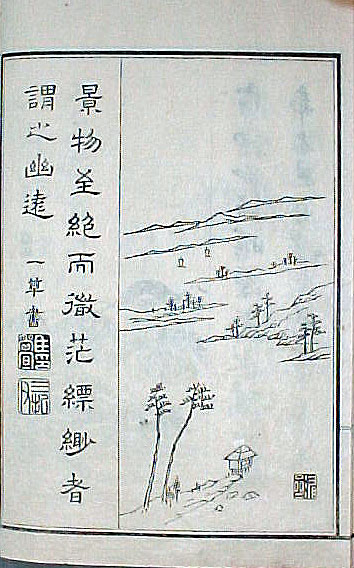 景物至絕而微茫縹緲者
謂之幽遠
一草書